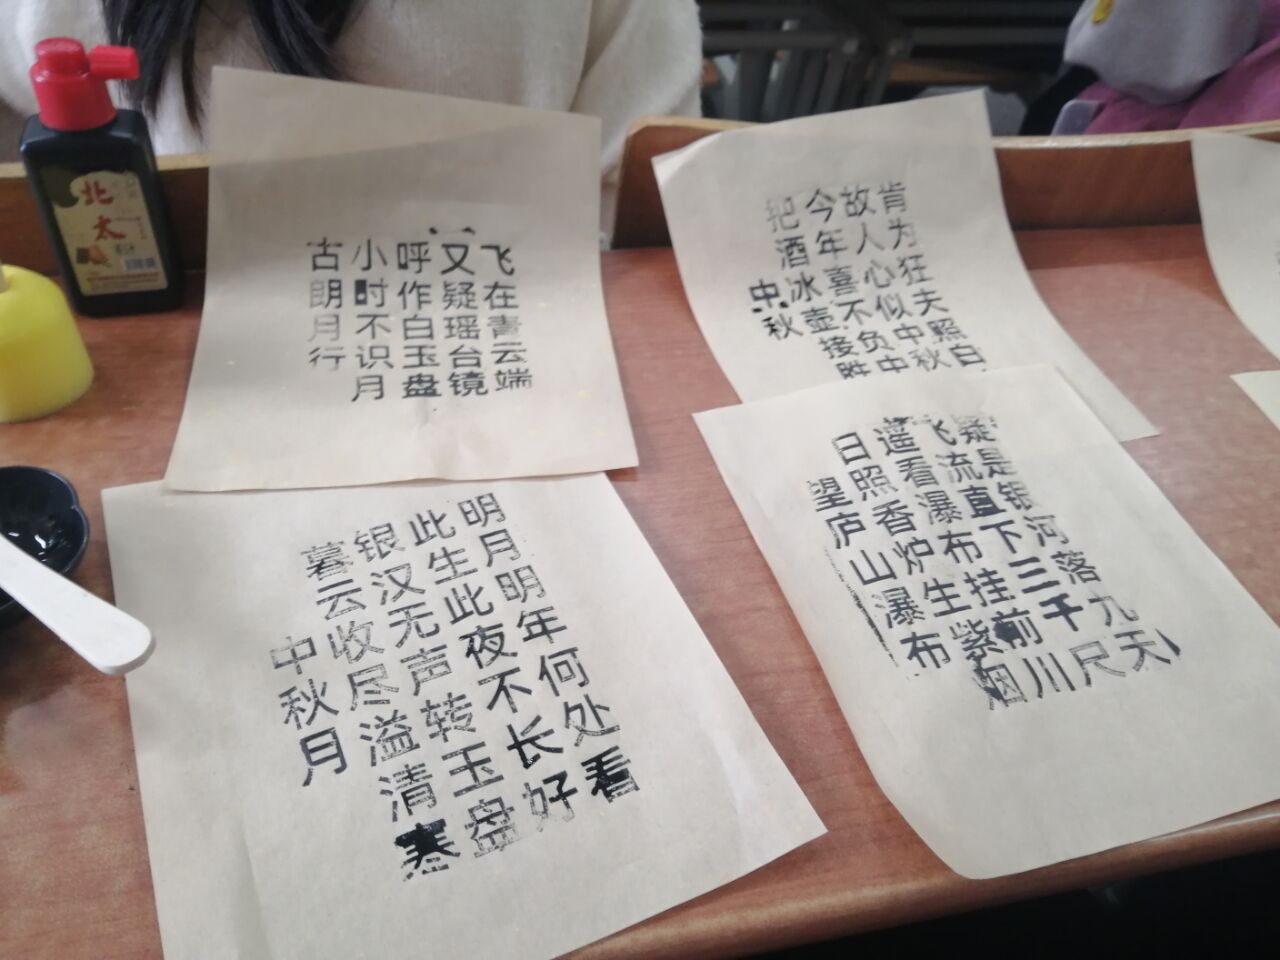 北太
古朗月行
小时不识月
呼作白玉盘
又疑瑶台镜
飞在青云端
中秋
把酒冰壶接胜
今年喜不负中
故人心似中秋
肯为狂夫照白
中秋月
暮云收尽溢清寒
银汉无声转玉盘
此生此夜不长好
明月明年何处看
望庐山瀑布
日照香炉生紫烟
遥看瀑布挂前川
飞流直下三千尺
疑是银河落九天